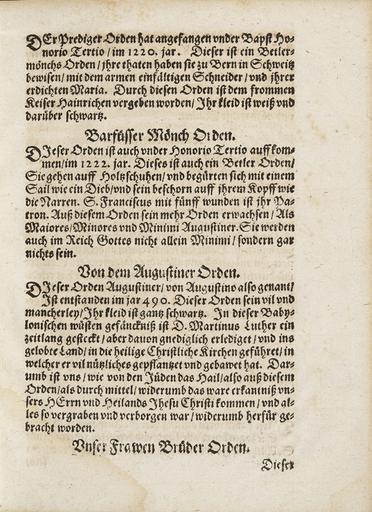 DEr Prediger Orden hat angefangen vnder Bapst Ho-
norio Tertio / im 1220. jar. Dieser ist ein Betler-
mönchs Orden / jhre thaten haben sie zu Bern in Schweitz
bewisen / mit dem armen einfältigen Schneider / vnd jhrer
erdichten Maria. Durch diesen Orden ist dem frommen
Keiser Hainrichen vergeben worden / Ihr kleid ist weiß vnd
darüber schwartz.
Barfüsser Mönch Orden.
DIeser Orden ist auch vnder Honorio Tertio auff kom-
men / im 1222. jar. Dieses ist auch ein Betler Orden /
Sie gehen auff Holtzschuhen / vnd begürten sich mit einem
Sail wie ein Dieb / vnd sein beschorn auff jhrem Kopff wie
die Narren. S. Franciscus mit fünff wunden ist jhr Pa-
tron. Auß diesem Orden sein mehr Orden erwachsen / Als
Maiores / Minores vnd Minimi Augustiner. Sie werden
auch im Reich Gottes nicht allein Minimi / sondern gar
nichts sein.
Von dem Augustiner Orden.
DIeser Orden Augustiner / von Augustino also genant /
Ist entstanden im jar 490. Dieser Orden sein vil vnd
mancherley / Ihr kleid ist gantz schwartz. In dieser Baby-
lonischen wüsten gefäncknuß ist D. Martinus Luther ein
zeitlang gesteckt / aber dauon gnediglich erlediget / vnd ins
gelobte Land / in die heilige Christliche Kirchen geführet / in
welcher er vil nützliches gepflantzet vnd gebawet hat. Dar-
umb ist vns / wie von den Jüden das Hail / also auß diesem
Orden / als durch mittel / widerumb das ware erkantniß vn-
sers HErrn vnd Heilands Jhesu Christi kommen / vnd al-
les so vergraben vnd verborgen war / widerumb herfür ge-
bracht worden.
Vnser Frawen Brüder Orden.
Dieser